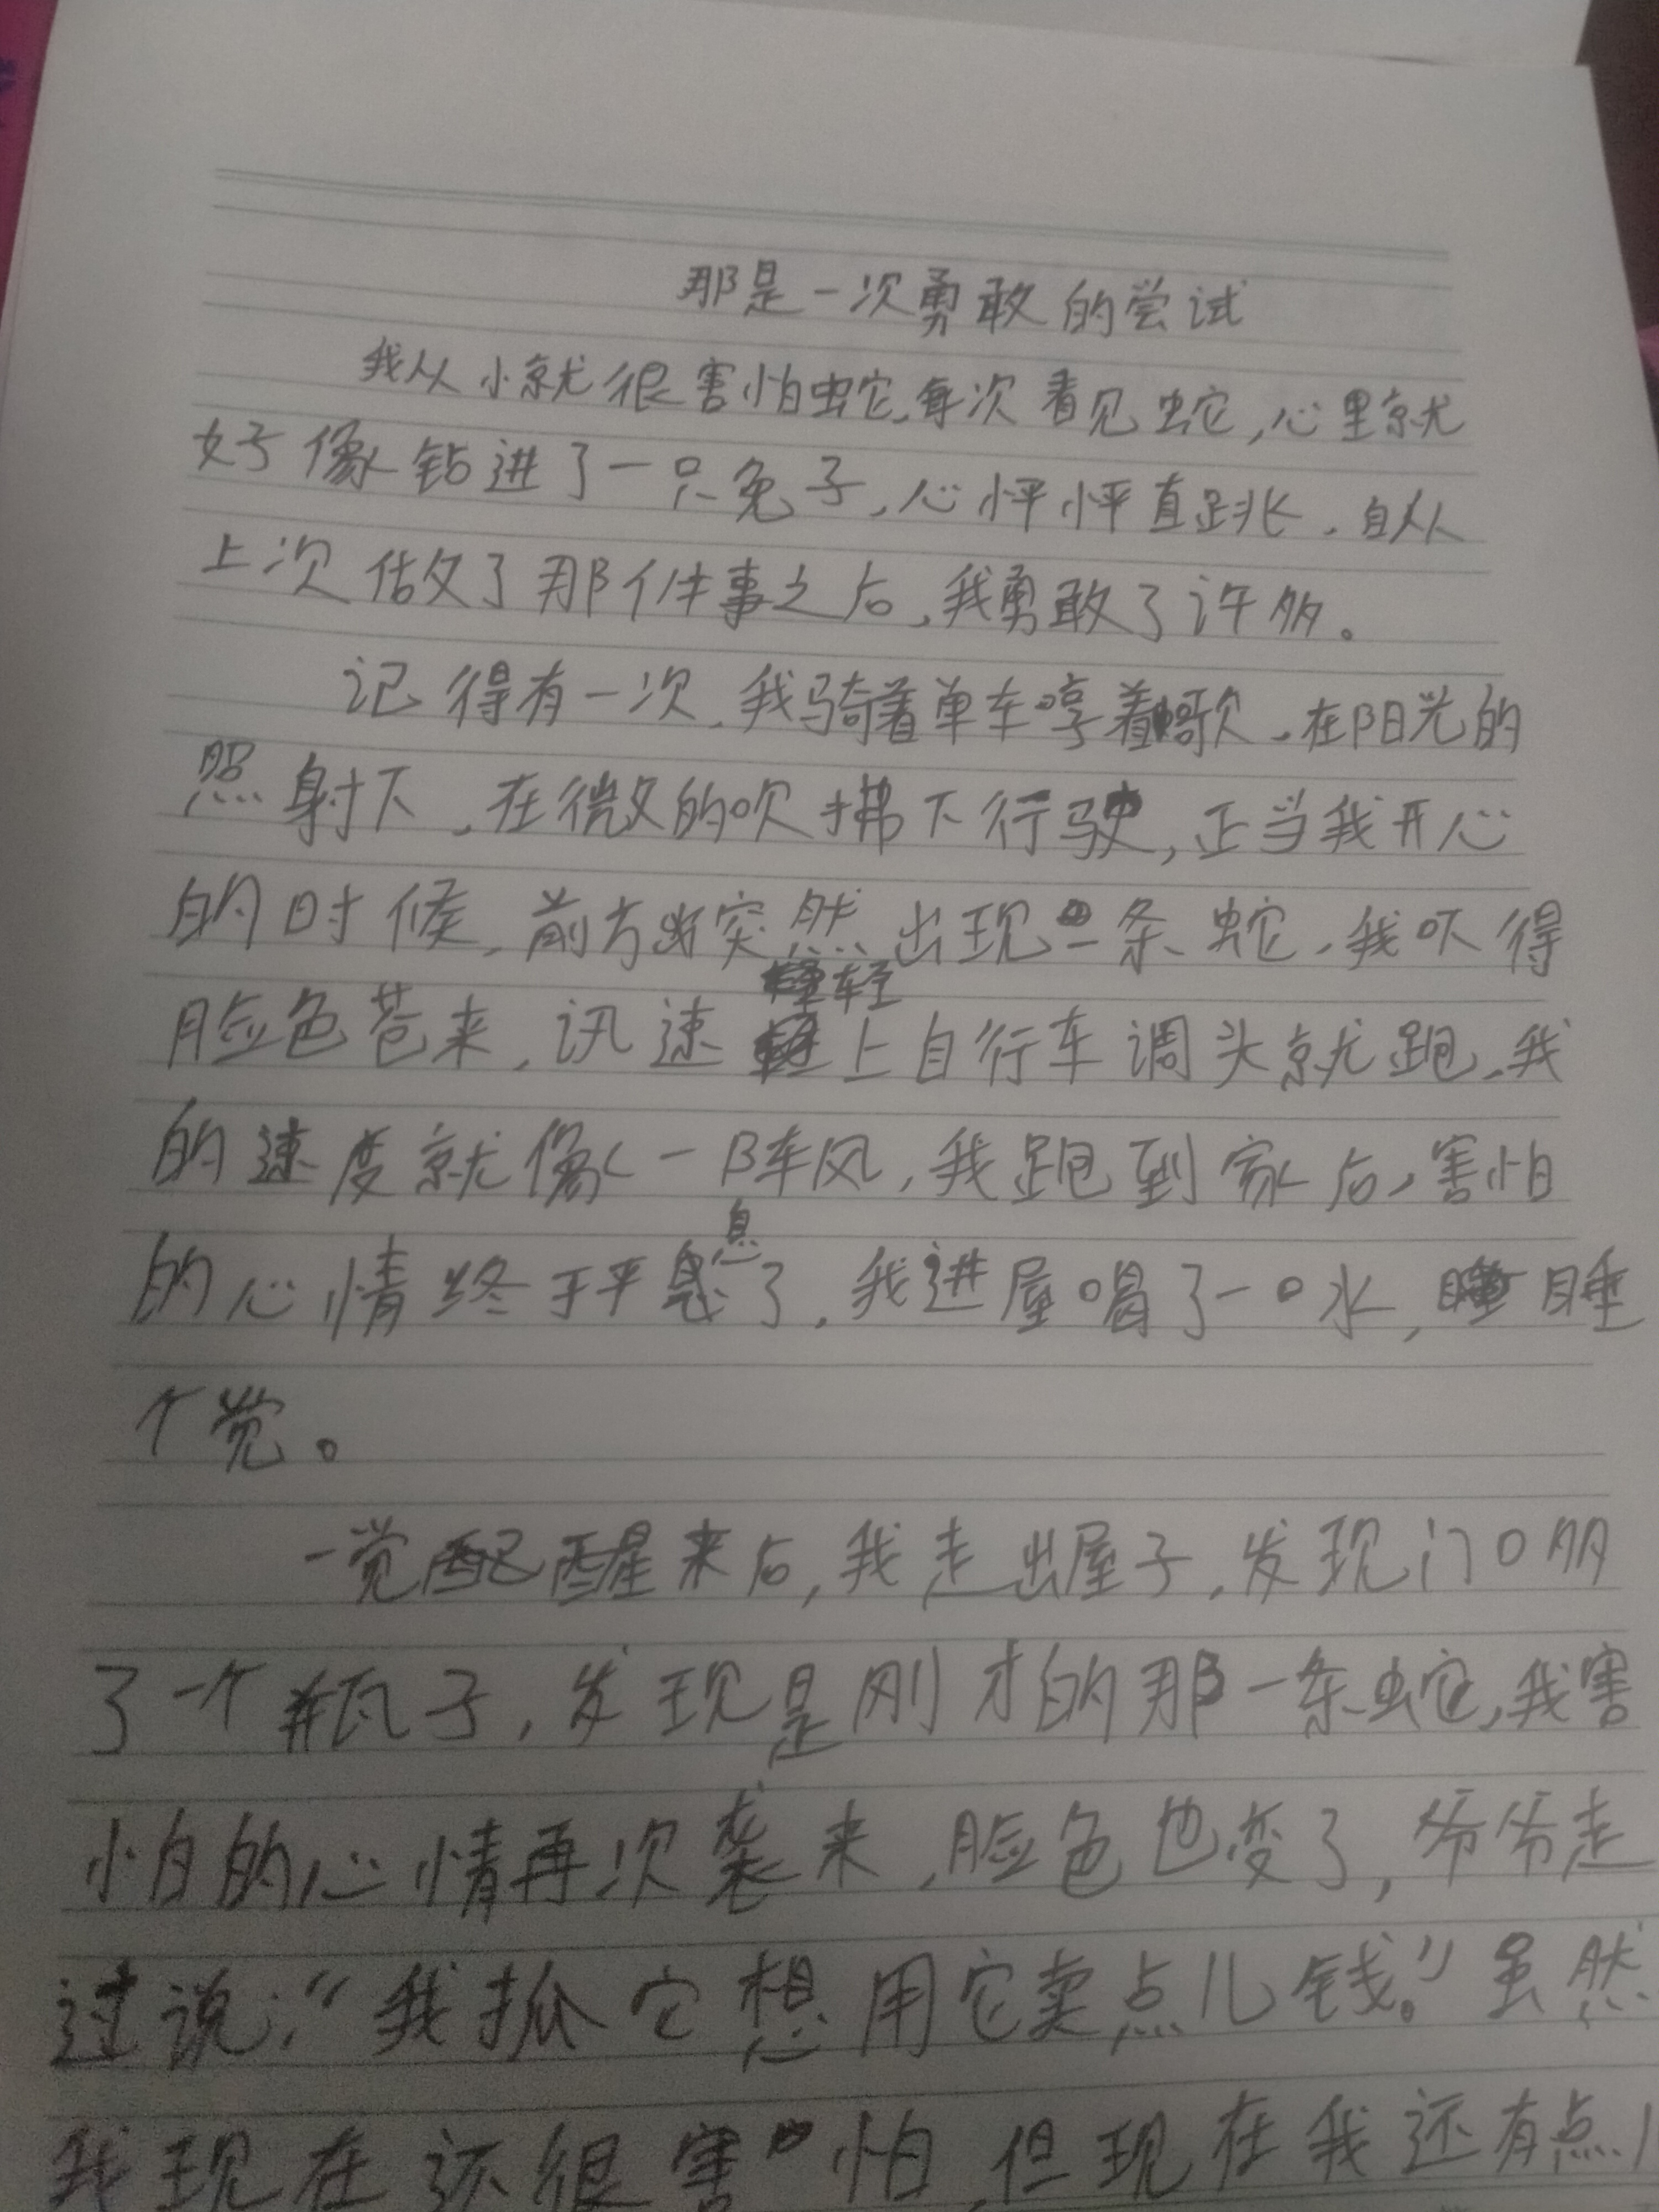 那是一次勇敢的尝试
我从小就很害怕蛇,每次看见蛇,心里就
好像钻进了一只兔子,心怦怦直跳,自从
上次做了那个件事之后,我勇敢了许多。
记得有一次,我骑着单车哼着歌,在阳光的
照射下,在微的吹拂下行驶,正当我开心
的时候,前方突然出现一条蛇,我吓得
脸色苍来,讯速上自行车调头就跑,我
的速度就像一阵风,我跑到家后,害怕
的心情终于平息了,我进屋喝了一口水,睡
个觉。
一觉醒来后,我走出屋子,发现门口多
了一个瓶子,发现是刚才的那一条蛇,我害
怕的心情再次袭来,脸色也变了,爷爷走
过说:“我抓它想用它卖点儿钱。”虽然
我现在还很害怕,但现在我还有点儿